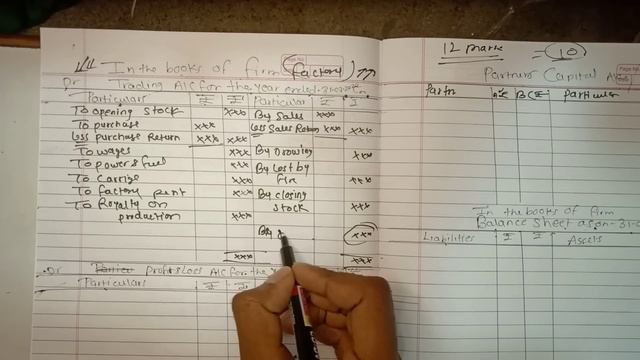 In the books of firm (factory)
Dr Trading A/C for the year ended 31-03-
Particulars ₹ ₹ Particular ₹ ₹
To opening stock xxx By Sales xxx
To purchase xxx Less Sales Return xxx xxx
Less purchase Return xxx xxx
To wages xxx By Drowing xxx
To power & fuel xxx By Lost by
To Carrige xxx fire xxx
To factory rent xxx By closing
To Royalty on stock xxx
production xxx
By xxx
xxx xxx
Dr profit & Loss A/C for the
Particulars ₹ ₹
12 mark = 10
Partners Capital A/
Partn A ₹ B ₹ C ₹ Particular
In the books of firm
Balance Sheet as on 31-0
Liabilities ₹ ₹ Assets